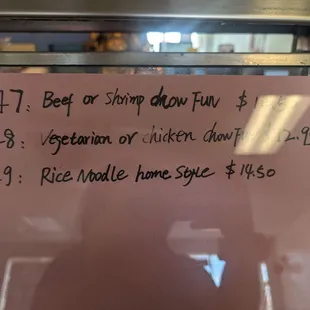 47: Beef or Shrimp chow Fun $
8: Vegetarian or chicken chow
9: Rice Noodle home Style $14.50